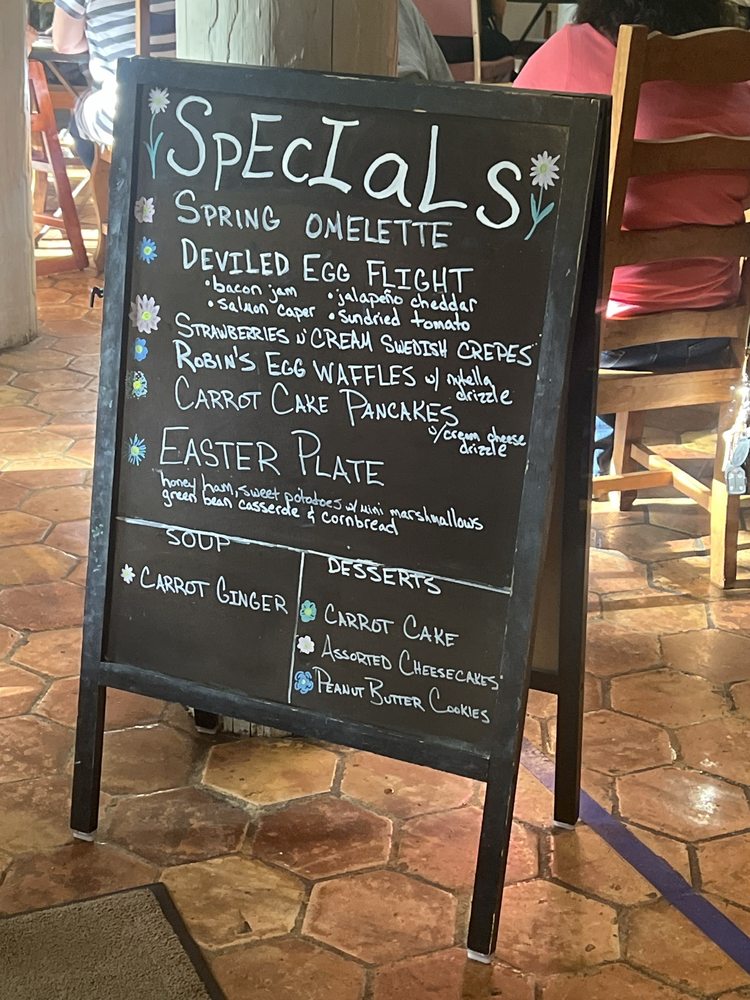 SPEcIaLs
SPRING OMELETTE
DEVILED EGG FLIGHT
•bacon jam •jalapeño cheddar
•salmon caper •sundried tomato
STRAWBERRIES N' CREAM SWEDISH CREPES
ROBIN'S EGG WAFFLES w/ nutella
drizzle
CARROT CAKE PANCAKES
w/cream cheese
drizzle
EASTER PLATE
honey ham, sweet potatoes w/ mini marshmallows
green bean casserole & cornbread
SOUP
CARROT GINGER
DESSERTS
CARROT CAKE
ASSORTED CHEESECAKES
PEANUT BUTTER COOKIES